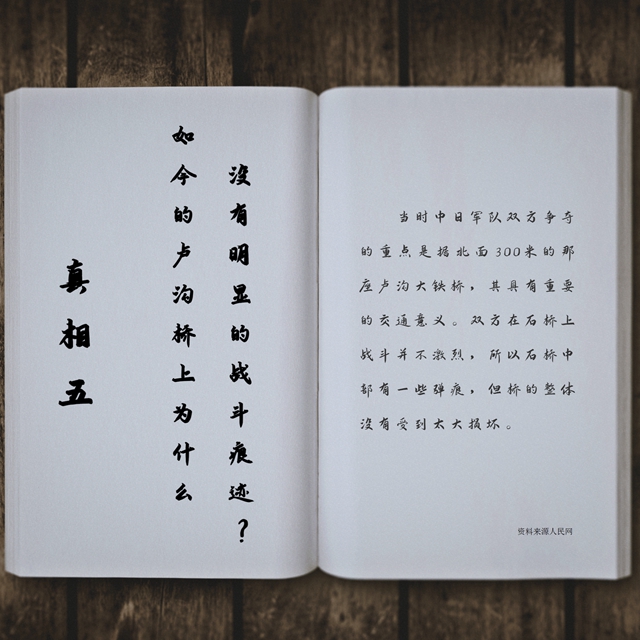 真相五
如今的卢沟桥上为什么
没有明显的战斗痕迹？
当时中日军队双方争夺
的重点是据北面300米的那
座卢沟大铁桥，其具有重要
的交通意义。双方在石桥上
战斗并不激烈，所以石桥中
部有一些弹痕，但桥的整体
没有受到太大损坏。
资料来源人民网